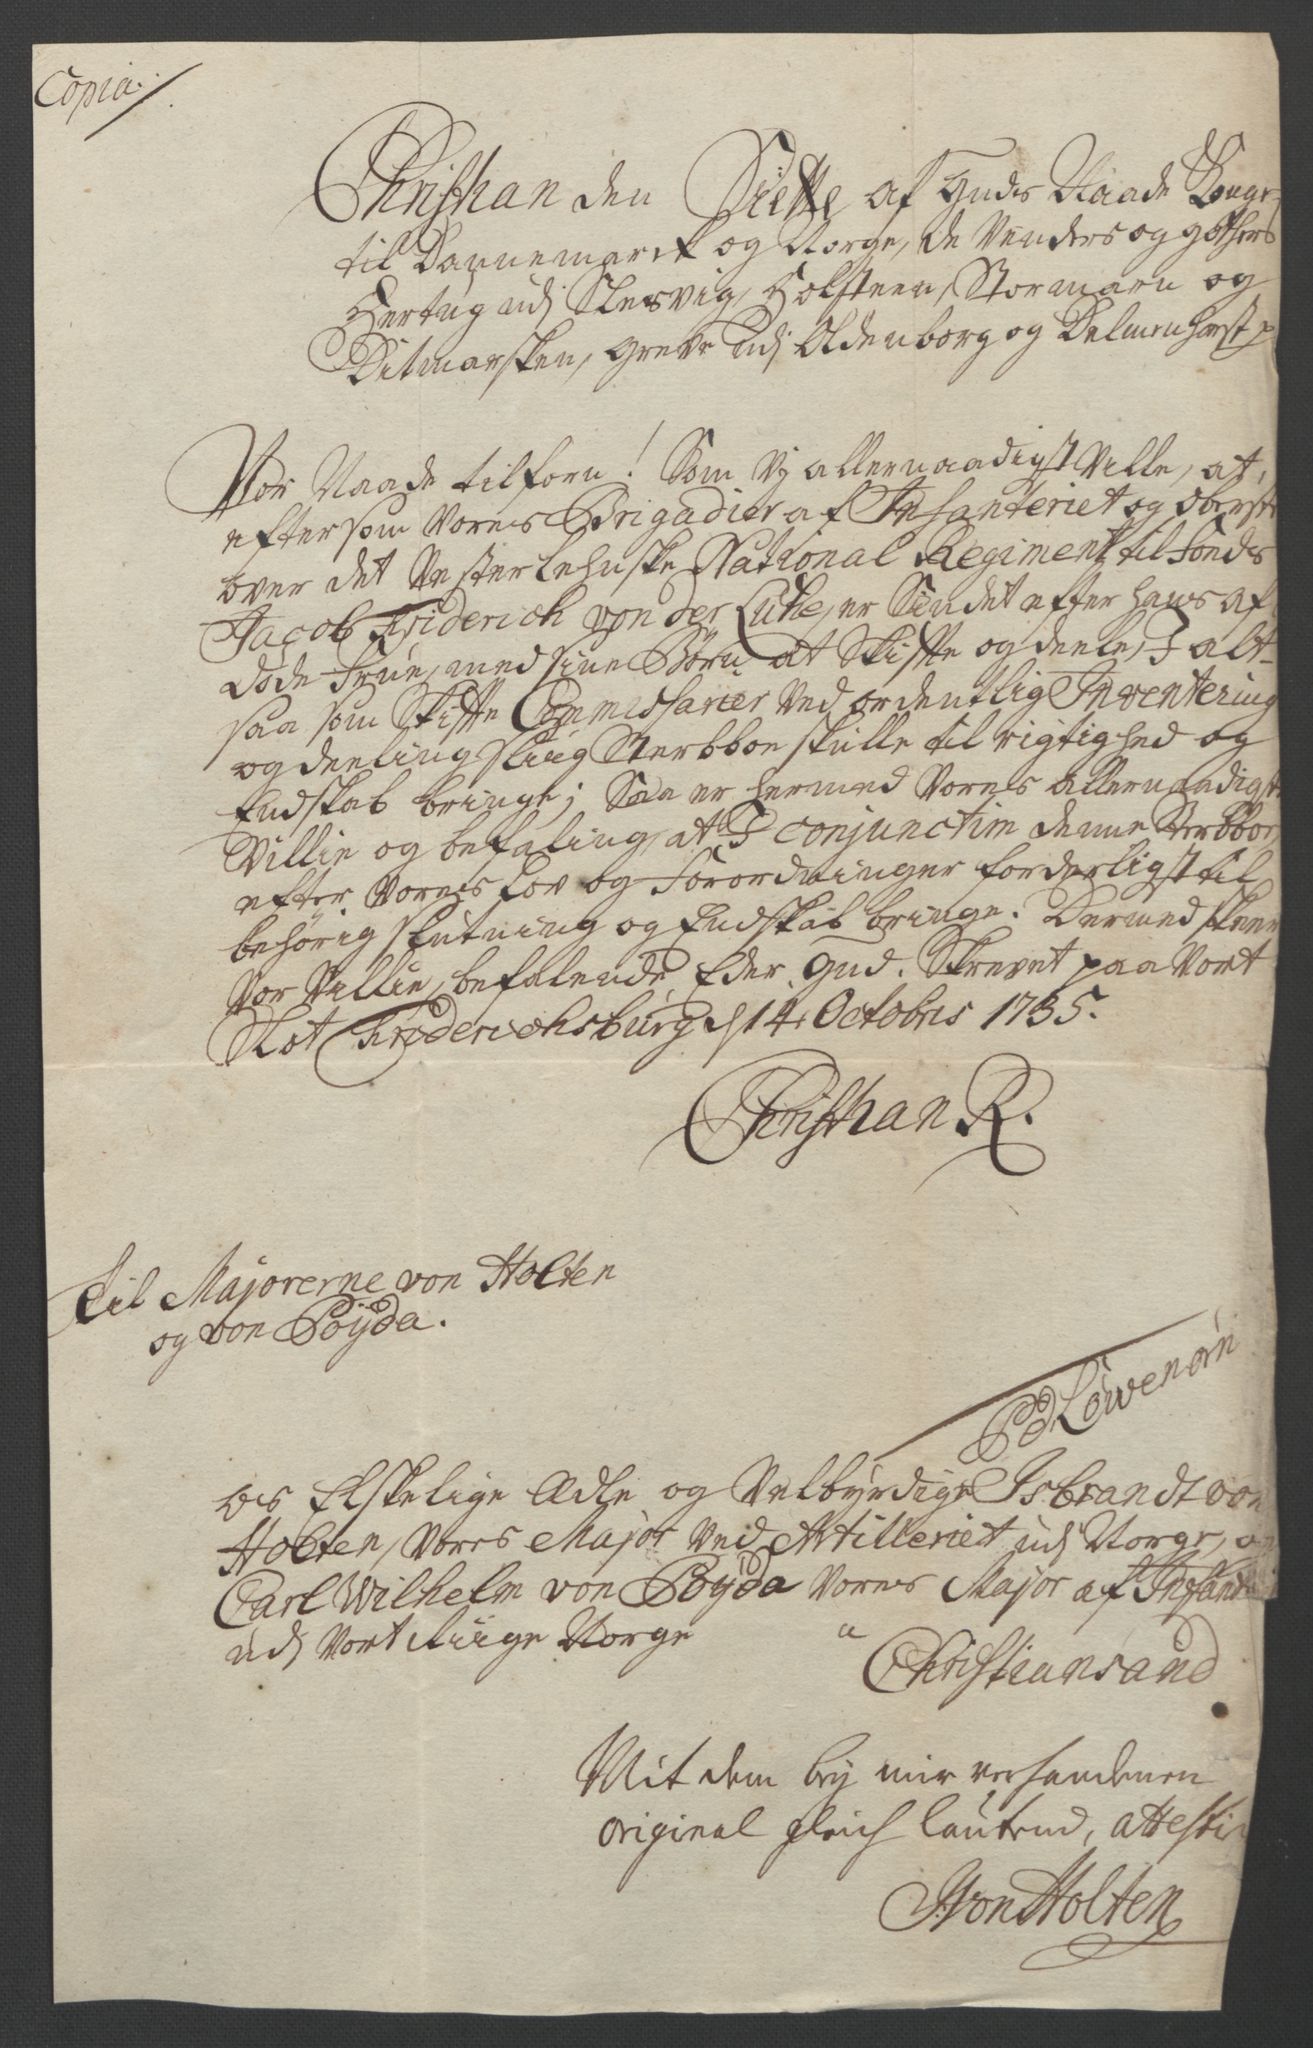 Copia.
Christian den Siette, af Guds Naade Konge
til Dannemarck og Norge, de Venders og Gothers
Hertug udj Slesvig, Holsteen, Stormarn og
Ditmarsken, Greve udj Oldenborg og Delmenhorst p
Vor Naade tilforn! Som Vj allernaadigst Ville, at,
eftersom Vores Brigadier af Infanteriet og Oberste
over det Vesterlehnske National Regiment til Fonds
Jacob Friderich von der Luhe, er Sindet efter hans af-
døde Frue, med sine Børn at Skifte og deele, I alt-
saa som Skifte Commissarier Ved ordentlig Inventering
og deeling sliig Sterbboe skulle til rigtighed og
Endskab bringe; Saa er hermed Vores allernaadigste
Villie og befaling, at I conjunctim denne Sterbboe,
efter Vores Lov og Forordninger forderligst til
behørig slutning og Endskab bringe. Dermed skeer
Vor Villie, befalende Eder Gud. Skrevet paa Vort
Slot Friderichsburg d 14 Octobris 1735.
Christian R.
Til Majorerne von Holten
og von Pöyda.
Pd Löwenörn
Os Elskelige Ædle og Velbyrdige Isbrandt von
Holten, Vores Major Ved Artilleriet udj Norge, og
Carl Wilhelm von Pöyda Vores Major af Infanteriet
udj Vort Riige Norge
a
Christiansand
Mit dem bey mir verhandenen
Original gleich lautend, attestir
JvonHolten